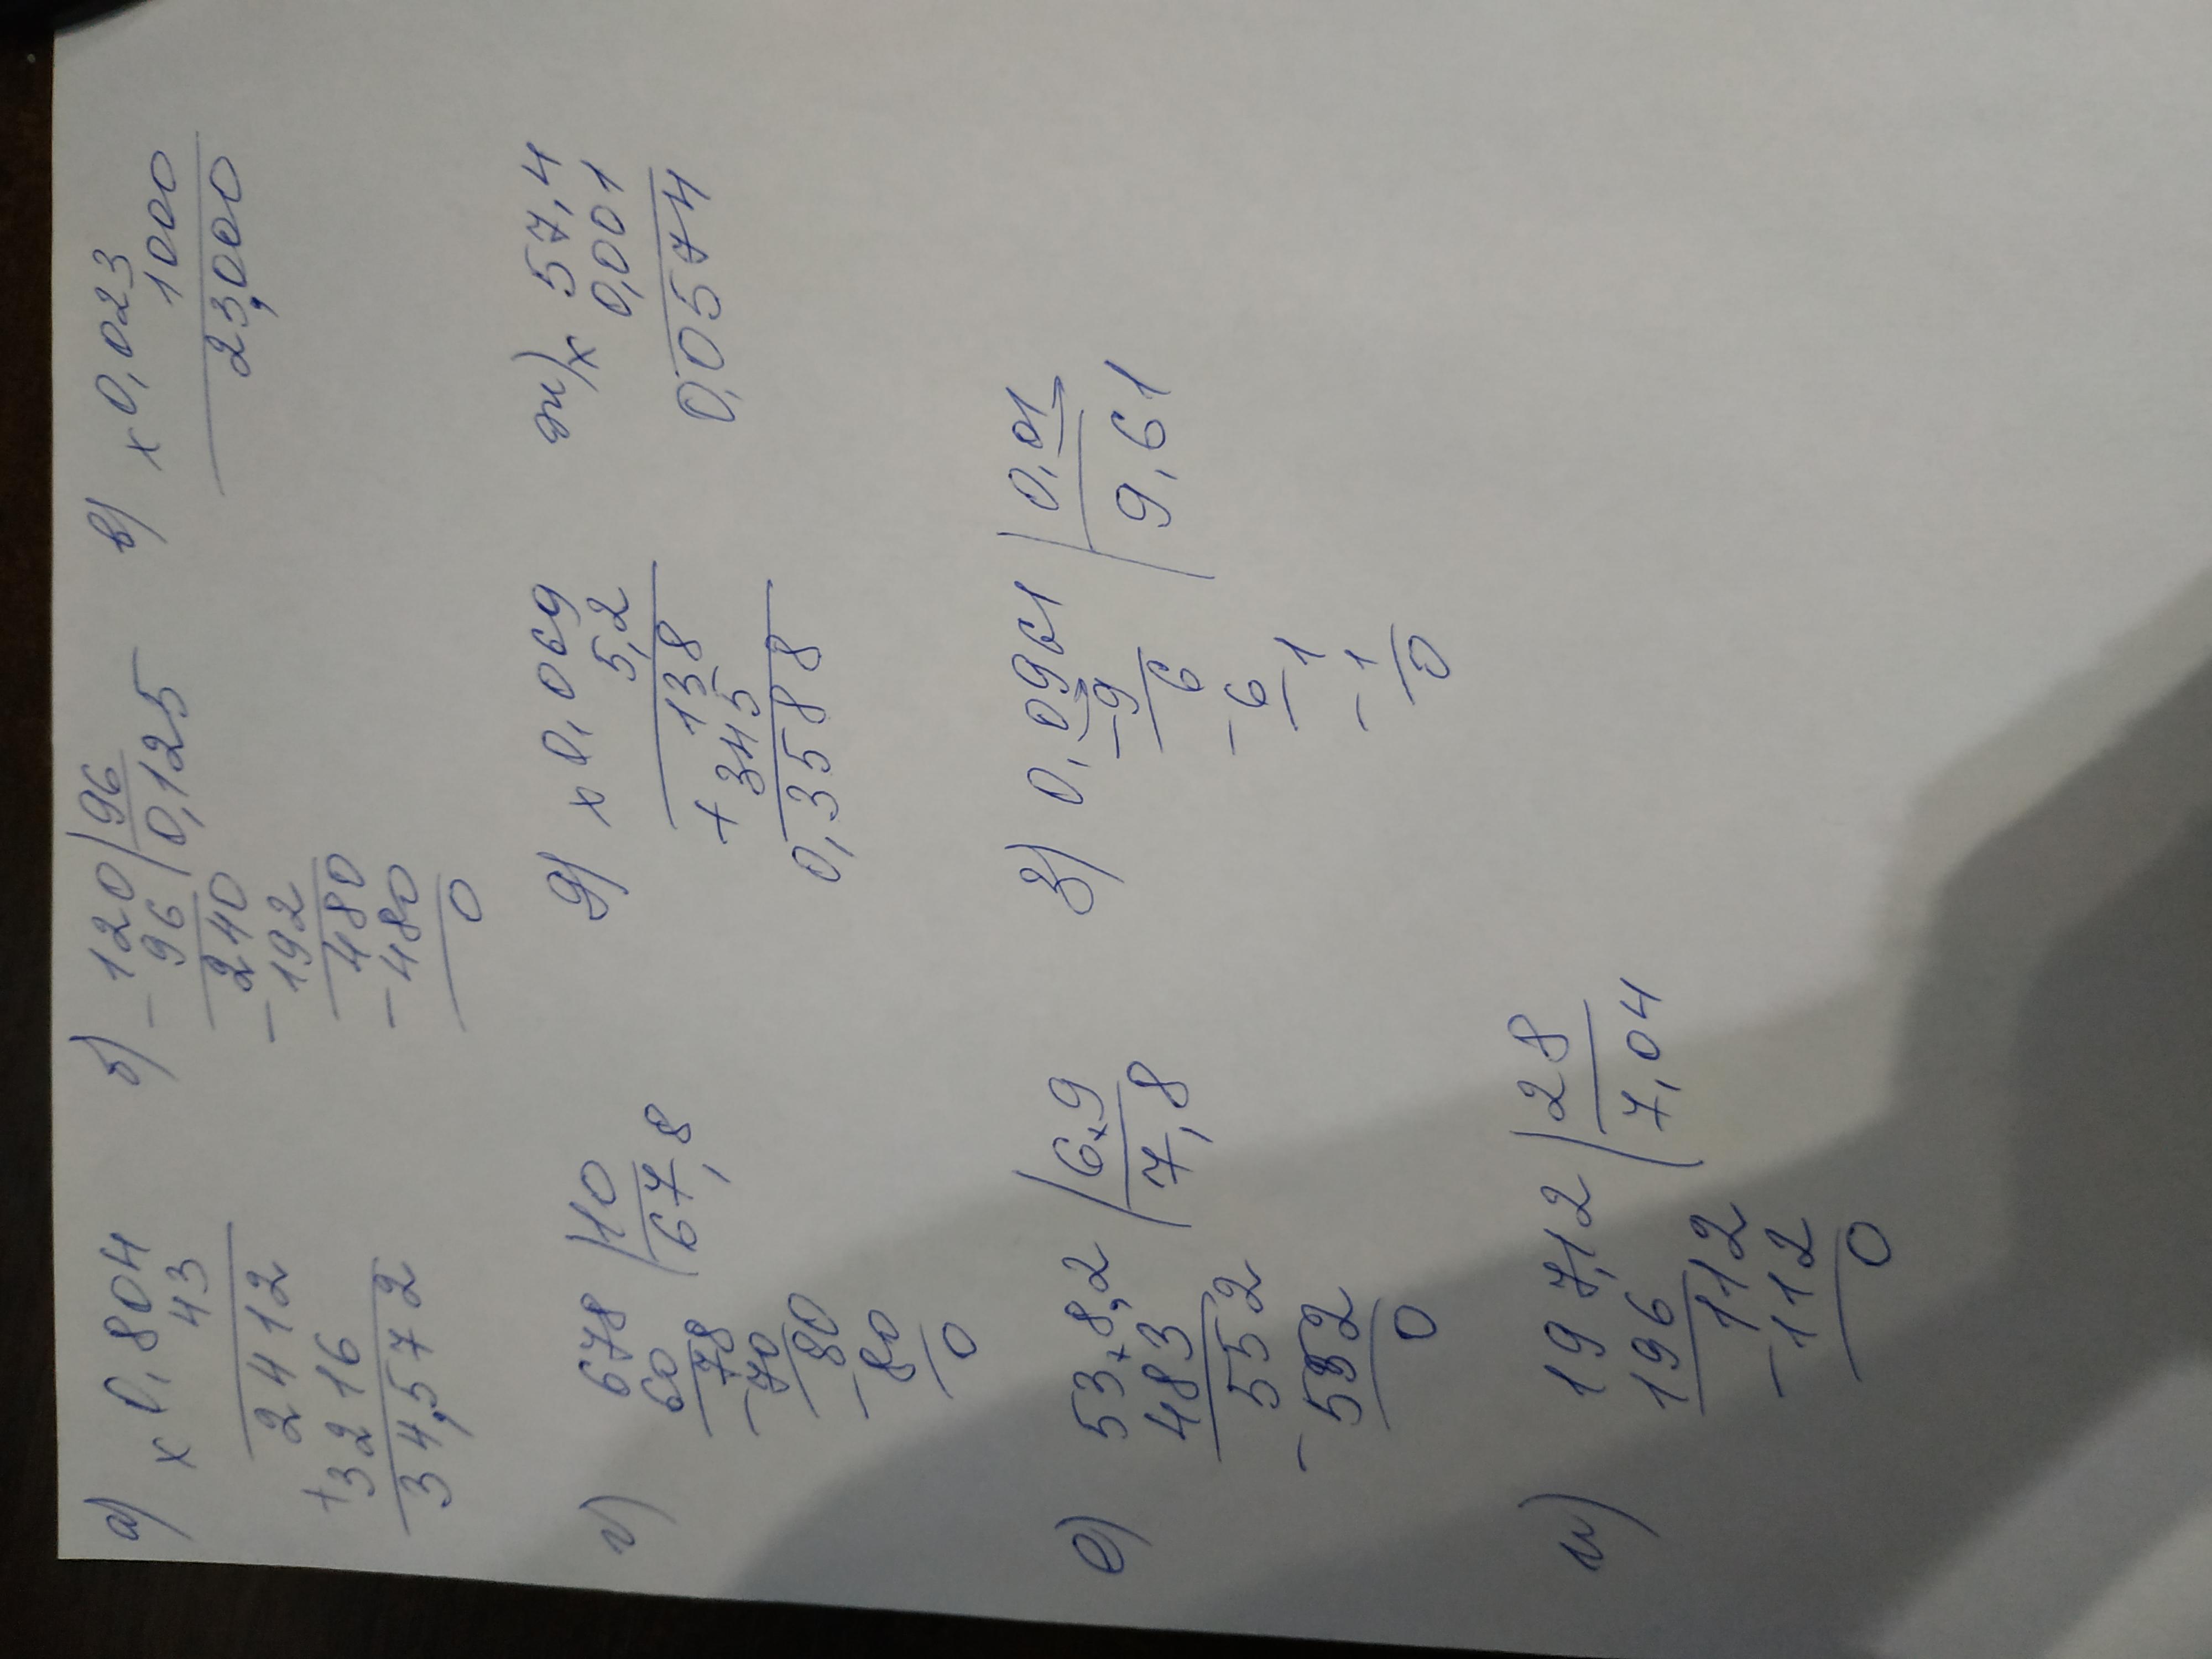 а) × 0,804
43
2412
+ 3216
34,572
б) - 120 | 96
96 | 0,125
240
- 192
480
- 480
0
в) × 0,023
1000
23,000
г) 678 | 10
60 | 67,8
78
- 70
80
- 80
0
д) × 0,069
5,2
138
+ 345
0,3588
ж) × 57,4
0,001
0,0574
е) 53,8,2 | 6,9
483 | 7,8
552
- 552
0
з) 0,0961 | 0,01
- 9 | 9,61
6
- 6
1
- 1
0
и) 197,12 | 28
196 | 7,04
112
- 112
0